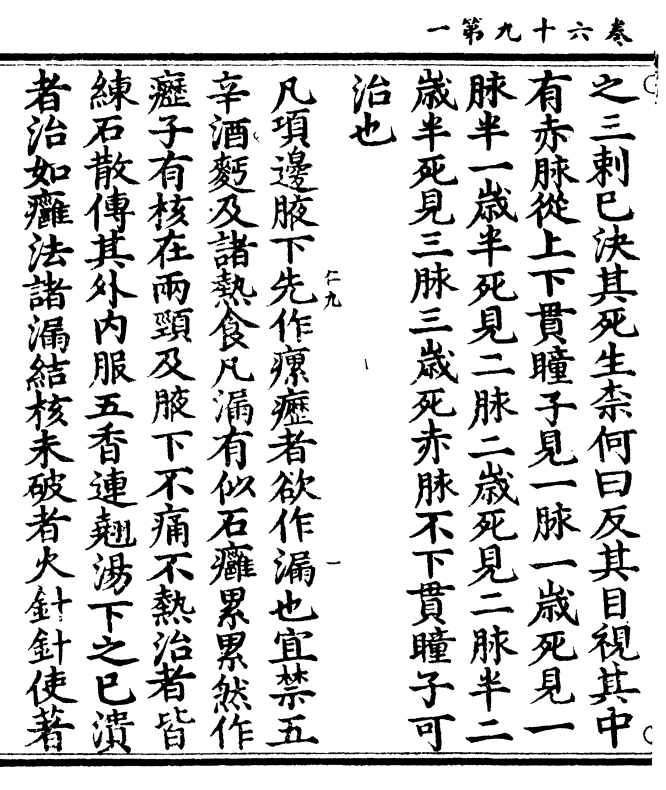 卷六十九第一
之三刺巳決其死生柰何曰反其目視其中
有赤脉從上下貫瞳子見一脉一歲死見一
脉半一歲半死見二脉二歲死見二脉半二
歲半死見三脉三歲死赤脉不下貫瞳子可
治也
仁九
凡項邊腋下先作瘰癧者欲作漏也宜禁五
辛酒麪及諸熱食凡漏有似石癰累累然作
癧子有核在兩頸及腋下不痛不熱治者皆
練石散傅其外内服五香連翹湯下之巳潰
者治如癰法諸漏結核未破者火針針使著